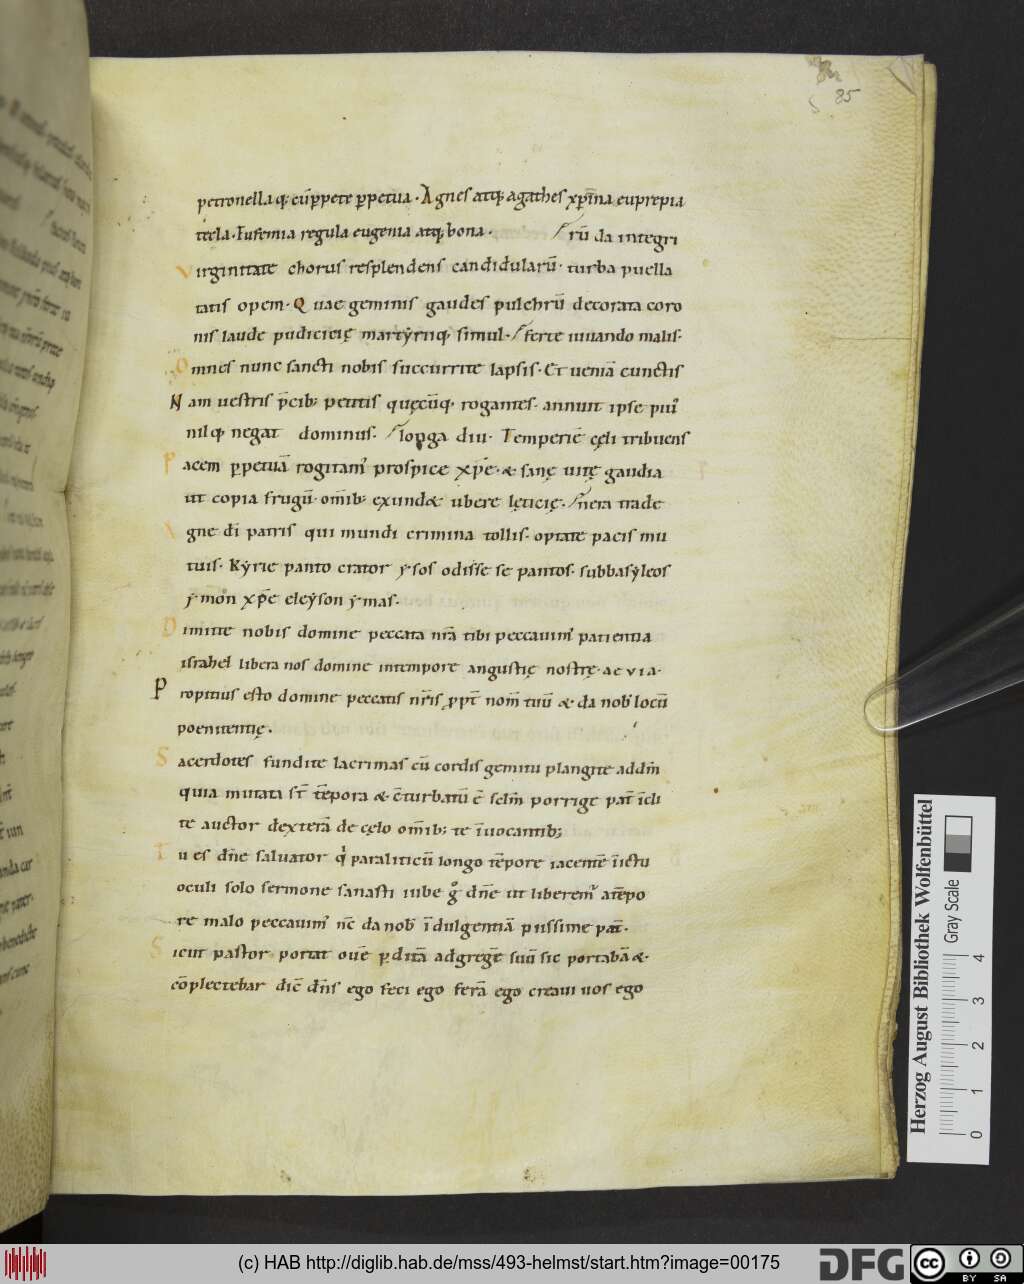 85
petronella q; cu̅ p̱pete p̱petua · Agnes atq; agathes xp̅ina euprepia
tecla · Eufemia regula eugenia atq; bona ·
/ru̅ da integri
Virginitate chorus resplendens candidularu̅ · turba puella
tatis opem · Quae geminis gaudes pulchru̅ decorata coro
nis laude pudicicię martẏriiq; simul · / ferte iuuando malis ·
Omnes nunc sancti nobis succurrite lapsis · Et uenia̅ cunctis
Nam uestris p̅cib; petitis quęcu̅q; rogantes · annuit ipse pius
nilq; negat dominus · / longa diu · Temperie̅ cęli tribuens
Pacem p̱petua̅ rogitamus prospice xp̅e · & sanę uitę gaudia
ut copia frugu̅ · omi̅b; exund& ubere lęticię · / nera trade
Agne di̅ patris qui mundi crimina tollis · optate pacis mu
tuis · Kẏrie panto crator ẏsos odisse se pantos · subbasẏleos
ẏmon xp̅e eleẏson ẏmas ·
Dimitte nobis domine peccata nr̅a tibi peccauimus patientia
israhel libera nos domine intempore angustię nostrę · ae v i a ·
Propitius esto domine peccatis nr̅is p̱pt̅ nom̅ tuu̅ & da nob̅ locu̅
poenitentię ·
Sacerdotes fundite lacrimas cu̅ cordis gemitu plangite add̅m
quia mutata st̅ te̅pora & c̅turbatu̅ e̅ sclm̅ porrige pat̅ i̅cli
te auctor dextera̅ de cęlo omi̅b; te i̅uocantib;
Tu es dn̅e saluator qi paraliticu̅ longo te̅pore iacente̅ i̅ictu
oculi solo sermone sanasti iube go dn̅e ut liberemus ate̅po
re malo peccauimus nc̅ da nob̅ i̅dulgentia̅ piissime pat̅ ·
Sicut pastor portat oue̅ p̱dita̅ adgrege̅ suu̅ sic portaba̅ & ·
co̅plectebar dic̅ dn̅s ego feci ego fera̅ ego creaui uos ego
Herzog August Bibliothek Wolfenbüttel
Gray Scale
0 1 2 3 4
(c) HAB http://diglib.hab.de/mss/493-helmst/start.htm?image=00175
DFG
cc BY SA